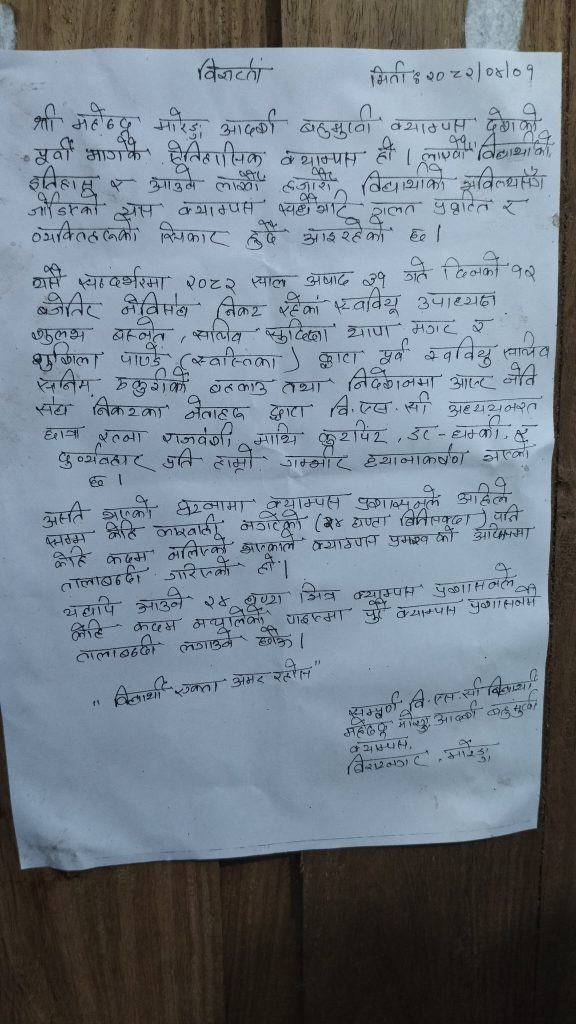 विज्ञप्ती
मिती : २०८२/०४/०१
श्री महेन्द्र मोरङ्ग आदर्श बहुमुखी क्याम्पस देशको
पूर्वी भागकै ऐतिहासिक क्याम्पस हो । लाखौँ विद्यार्थीको
इतिहास र आउने लाखौँ हजारौँ विद्यार्थीको भविष्यसँग
जोडिएको यस क्याम्पस सधैँभरि गलत प्रवृति र
व्यक्तिहरूको सिकार हुँदै आइरहेको छ ।
यसै सन्दर्भमा २०८२ साल अषाढ ३१ गते दिनको १२
बजेतिर नेविसंघ निकट रहेका स्ववियू उपाध्यक्ष
सुलभ बस्नेत, सचिव थापा मगर र
पाण्डे (स्वस्तिका) द्वारा पूर्व स्ववियु सचिव
ठकुरीको बहकाउ तथा निर्देशनमा आएर नेवि
संघ निकटका नेताहरू द्वारा वि.एस.सी अध्ययनरत
छात्रा रत्ना राजवंशी माथि कुटपिट, डर-धम्की, र
दुर्व्यवहार प्रति हाम्रो गम्भीर ध्यानाकर्षण भएको
छ ।
असति भएको घटनामा क्याम्पस प्रशासनले अहिले
सम्म केहि नगरेको (२४ घण्टा बितिसक्दा) पनि
केहि कदम नलिएको भएकाले क्याम्पस प्रमुख को अफिसमा
तालाबन्दी गरिएको हो ।
यद्यपि आउने २४ घण्टा भित्र क्याम्पस प्रशासनले
केहि कदम नचालेको पाइएमा पुरै क्याम्पस प्रशासनमै
तालाबन्दी लगाउने छौँ ।
" विद्यार्थी एकता अमर रहोस "
सम्पूर्ण वि.एस.सी विद्यार्थी
महेन्द्र मोरङ्ग आदर्श बहुमुखी
क्याम्पस,
विराटनगर, मोरङ्ग